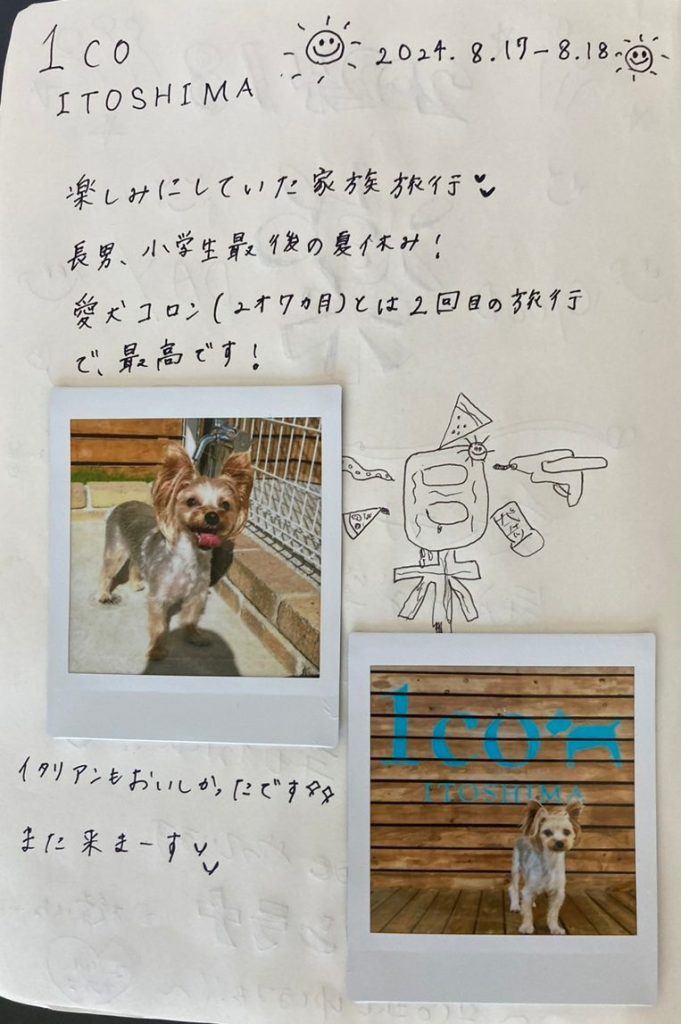 1co
ITOSHIMA
2024. 8.17-8.18
楽しみにしていた家族旅行
長男、小学生最後の夏休み!
愛犬コロン(2才7ヵ月)とは2回目の旅行
で、最高です!
1co
ITOSHIMA
イタリアンもおいしかったです☆☆
また来まーす